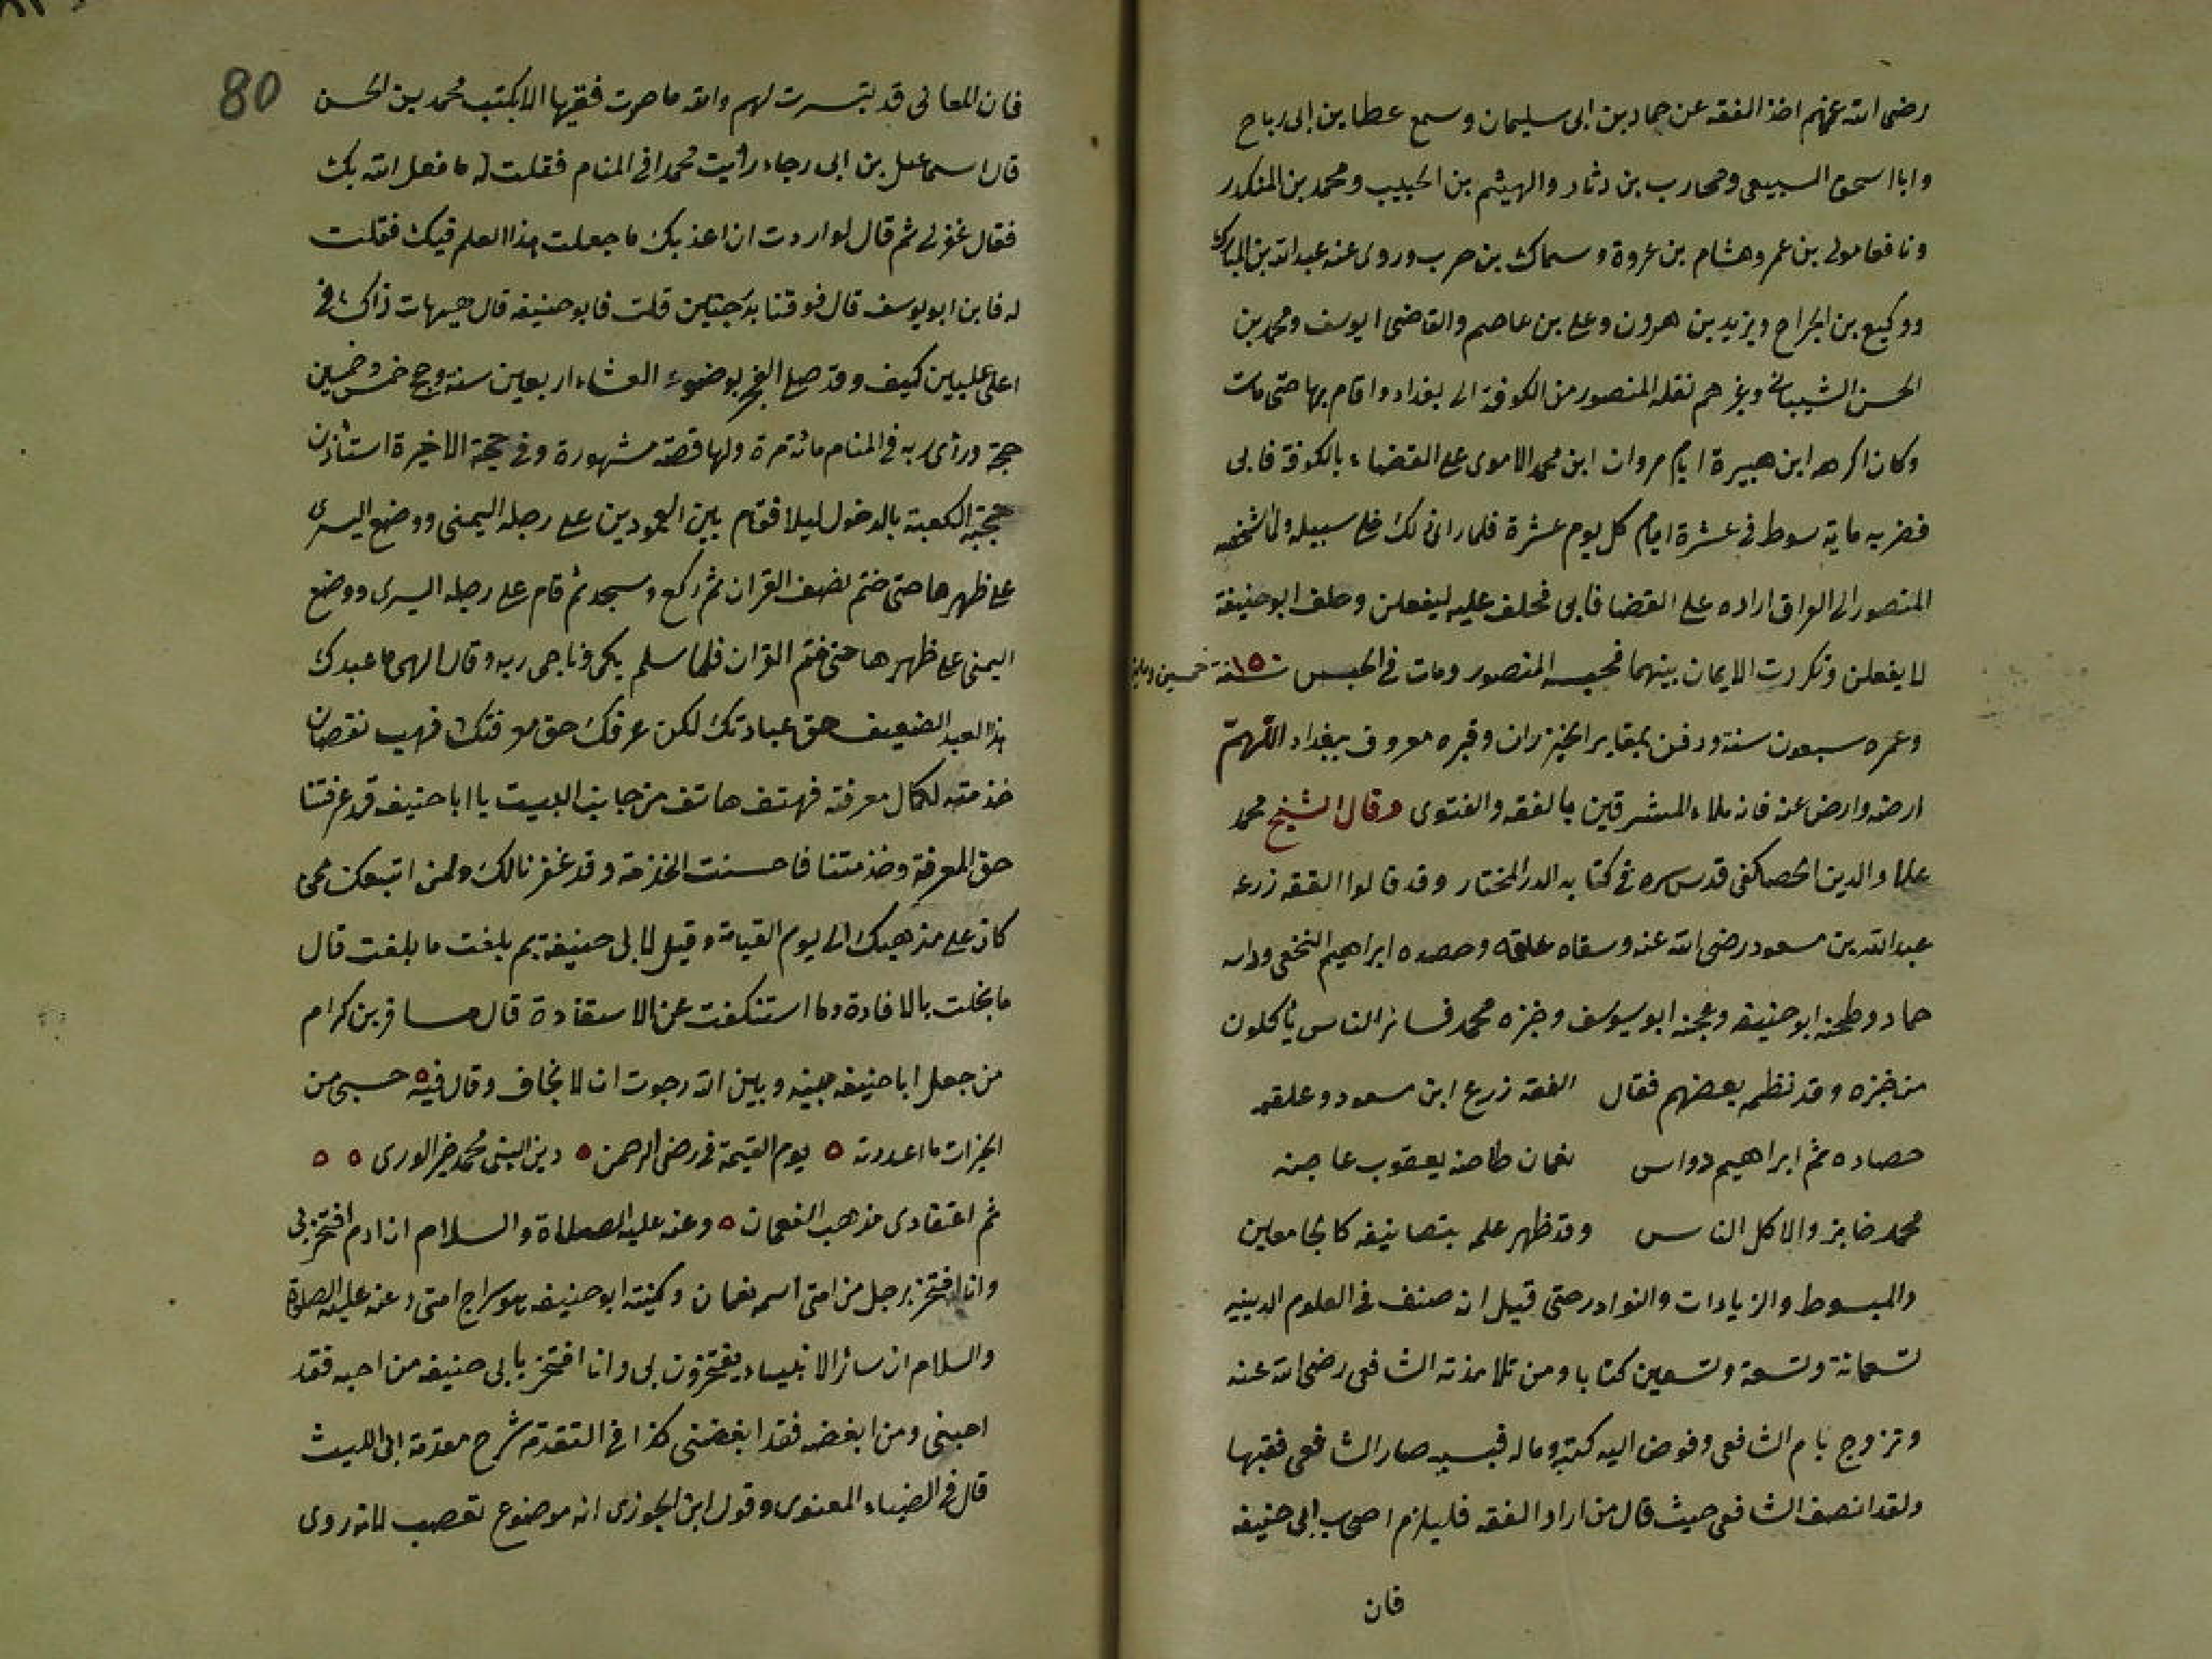 رضى الله عنهم اخذ الفقه عن حماد بن ابى سليمان وسمع عطا بن ابى رباح
وابا اسحق السبيعى ومحارب بن دثار والهيثم بن الحبيب ومحمد بن المنكدر
ونافعا مولى بن عمر وهشام بن عروة وسماك بن حرب وروى عنه عبد الله بن المبارك
ووكيع بن الجراح ويزيد بن هرون وعلى بن عاصم والقاضى ابو يوسف ومحمد بن
الحسن الشيبانى وغيرهم نقله المنصور من الكوفة الى بغداد واقام بها حتى مات
وكان اكرهه ابن هبيرة ايام مروان ابن محمد الاموى على القضاء بالكوفة فابى
فضربه ماية سوط فى عشرة ايام كل يوم عشرة فلما راى ذلك خلى سبيله ولما اشخصه
المنصور الى العراق اراده على القضا فابى فحلف عليه ليفعلن وحلف ابو حنيفة
لا يفعلن وتكررت الايمان بينهما فحبسه المنصور ومات فى الحبس سنة ١٥٠ خمسين ومايه
وعمره سبعون سنة ودفن بمقابر الخيزران وقبره معروف ببغداد اللهم
ارضه وارض عنه فانه ملاء المشرقين بالفقه والفتوى وقال الشيخ محمد
علاء الدين الحصاكفى قدس سره فى كتابه الدر المختار وقد قالوا الفقه زرعه
عبد الله بن مسعود رضى الله عنه وسقاه علقمه وحصده ابراهيم النخعى وداسه
حماد وطحنه ابو حنيفه وعجنه ابو يوسف وخبزه محمد فسائر الناس ياكلون
من خبزه وقد نظمه بعضهم فقال الفقه زرع ابن مسعود وعلقمه
حصاده ثم ابراهيم دواس نعمان طاحنه يعقوب عاجنه
محمد خابز والاكل الناس وقد ظهر علمه بتصانيفه كالجامعين
والمبسوط والزيادات والنوادر حتى قيل انه صنف فى العلوم الدينيه
تسعمائة وتسعة وتسعين كتابا ومن تلامذته الشافعى رضى الله عنه
وتزوج بام الشافعى وفوض اليه كتبه وماله فبسببه صار الشافعى فقيها
ولقد انصف الشافعى حيث قال من اراد الفقه فليلزم اصحاب ابى حنيفه
فان
80
فان المعانى قد تيسرت لهم والله ما صرت فقيها الا بكتب محمد بن الحسن
قال اسماعيل بن ابى رجاء رأيت محمدا فى المنام فقلت له ما فعل الله بك
فقال غفر لى ثم قال لو اردت ان اعذبك ما جعلت هذا العلم فيك فقلت
له فاين ابو يوسف قال فوقنا بدرجتين قلت فابو حنيفه قال هيهات ذاك فى
اعلى عليين كيف وقد صلى الفجر بوضوء العشاء اربعين سنة وحج خمس وخمسين
حجة ورأى ربه فى المنام مائة مرة ولها قصة مشهورة وفى حجة الاخيرة استأذن
حجبة الكعبة بالدخول ليلا فقام بين العمودين على رجله اليمنى ووضع اليسرى
على ظهرها حتى ختم نصف القران ثم ركع وسجد ثم قام على رجله اليسرى ووضع
اليمنى على ظهرها حتى ختم القران فلما سلم بكى وناجى ربه وقال الهى ما عبدك
هذا العبد الضعيف حق عبادتك لكن عرفك حق معرفتك فهب نقصان
خذمته لكمال معرفته فهتف هاتف من جانب البيت يا ابا حنيفه قد عرفتنا
حق المعرفة وخذمتنا فاحسنت الخذمة وقد غفرنا لك ولمن اتبعك ممن
كان على مذهبك الى يوم القيامة وقيل لابى حنيفة بم بلغت ما بلغت قال
ما بخلت بالافادة وما استنكفت عن الاستفادة قال مسافر بن كرام
من جعل ابا حنيفه بينه وبين الله رجوت ان لا يخاف وقال فيه ٥ حسبى من
الخيرات ما اعددته ٥ يوم القيمة فى رضى الرحمن ٥ دين النبى محمد خير الورى ٥ ٥
ثم اعتقادى مذهب النعمان ٥ وعنه عليه الصلاة والسلام ان ادم افتخر بى
وانا افتخر برجل من امتى اسمه نعمان وكنيته ابو حنيفه هو سراج امتى وعنه عليه الصلوة
والسلام ان سائر الانبياء يفتخرون بى وانا افتخر بابى حنيفه من احبه فقد
احبنى ومن ابغضه فقد ابغضنى كذا فى التقدمة شرح مقدمة ابى الليث
قال فى الضياء المعنوى وقول ابن الجوزى انه موضوع تعصب لانه روى